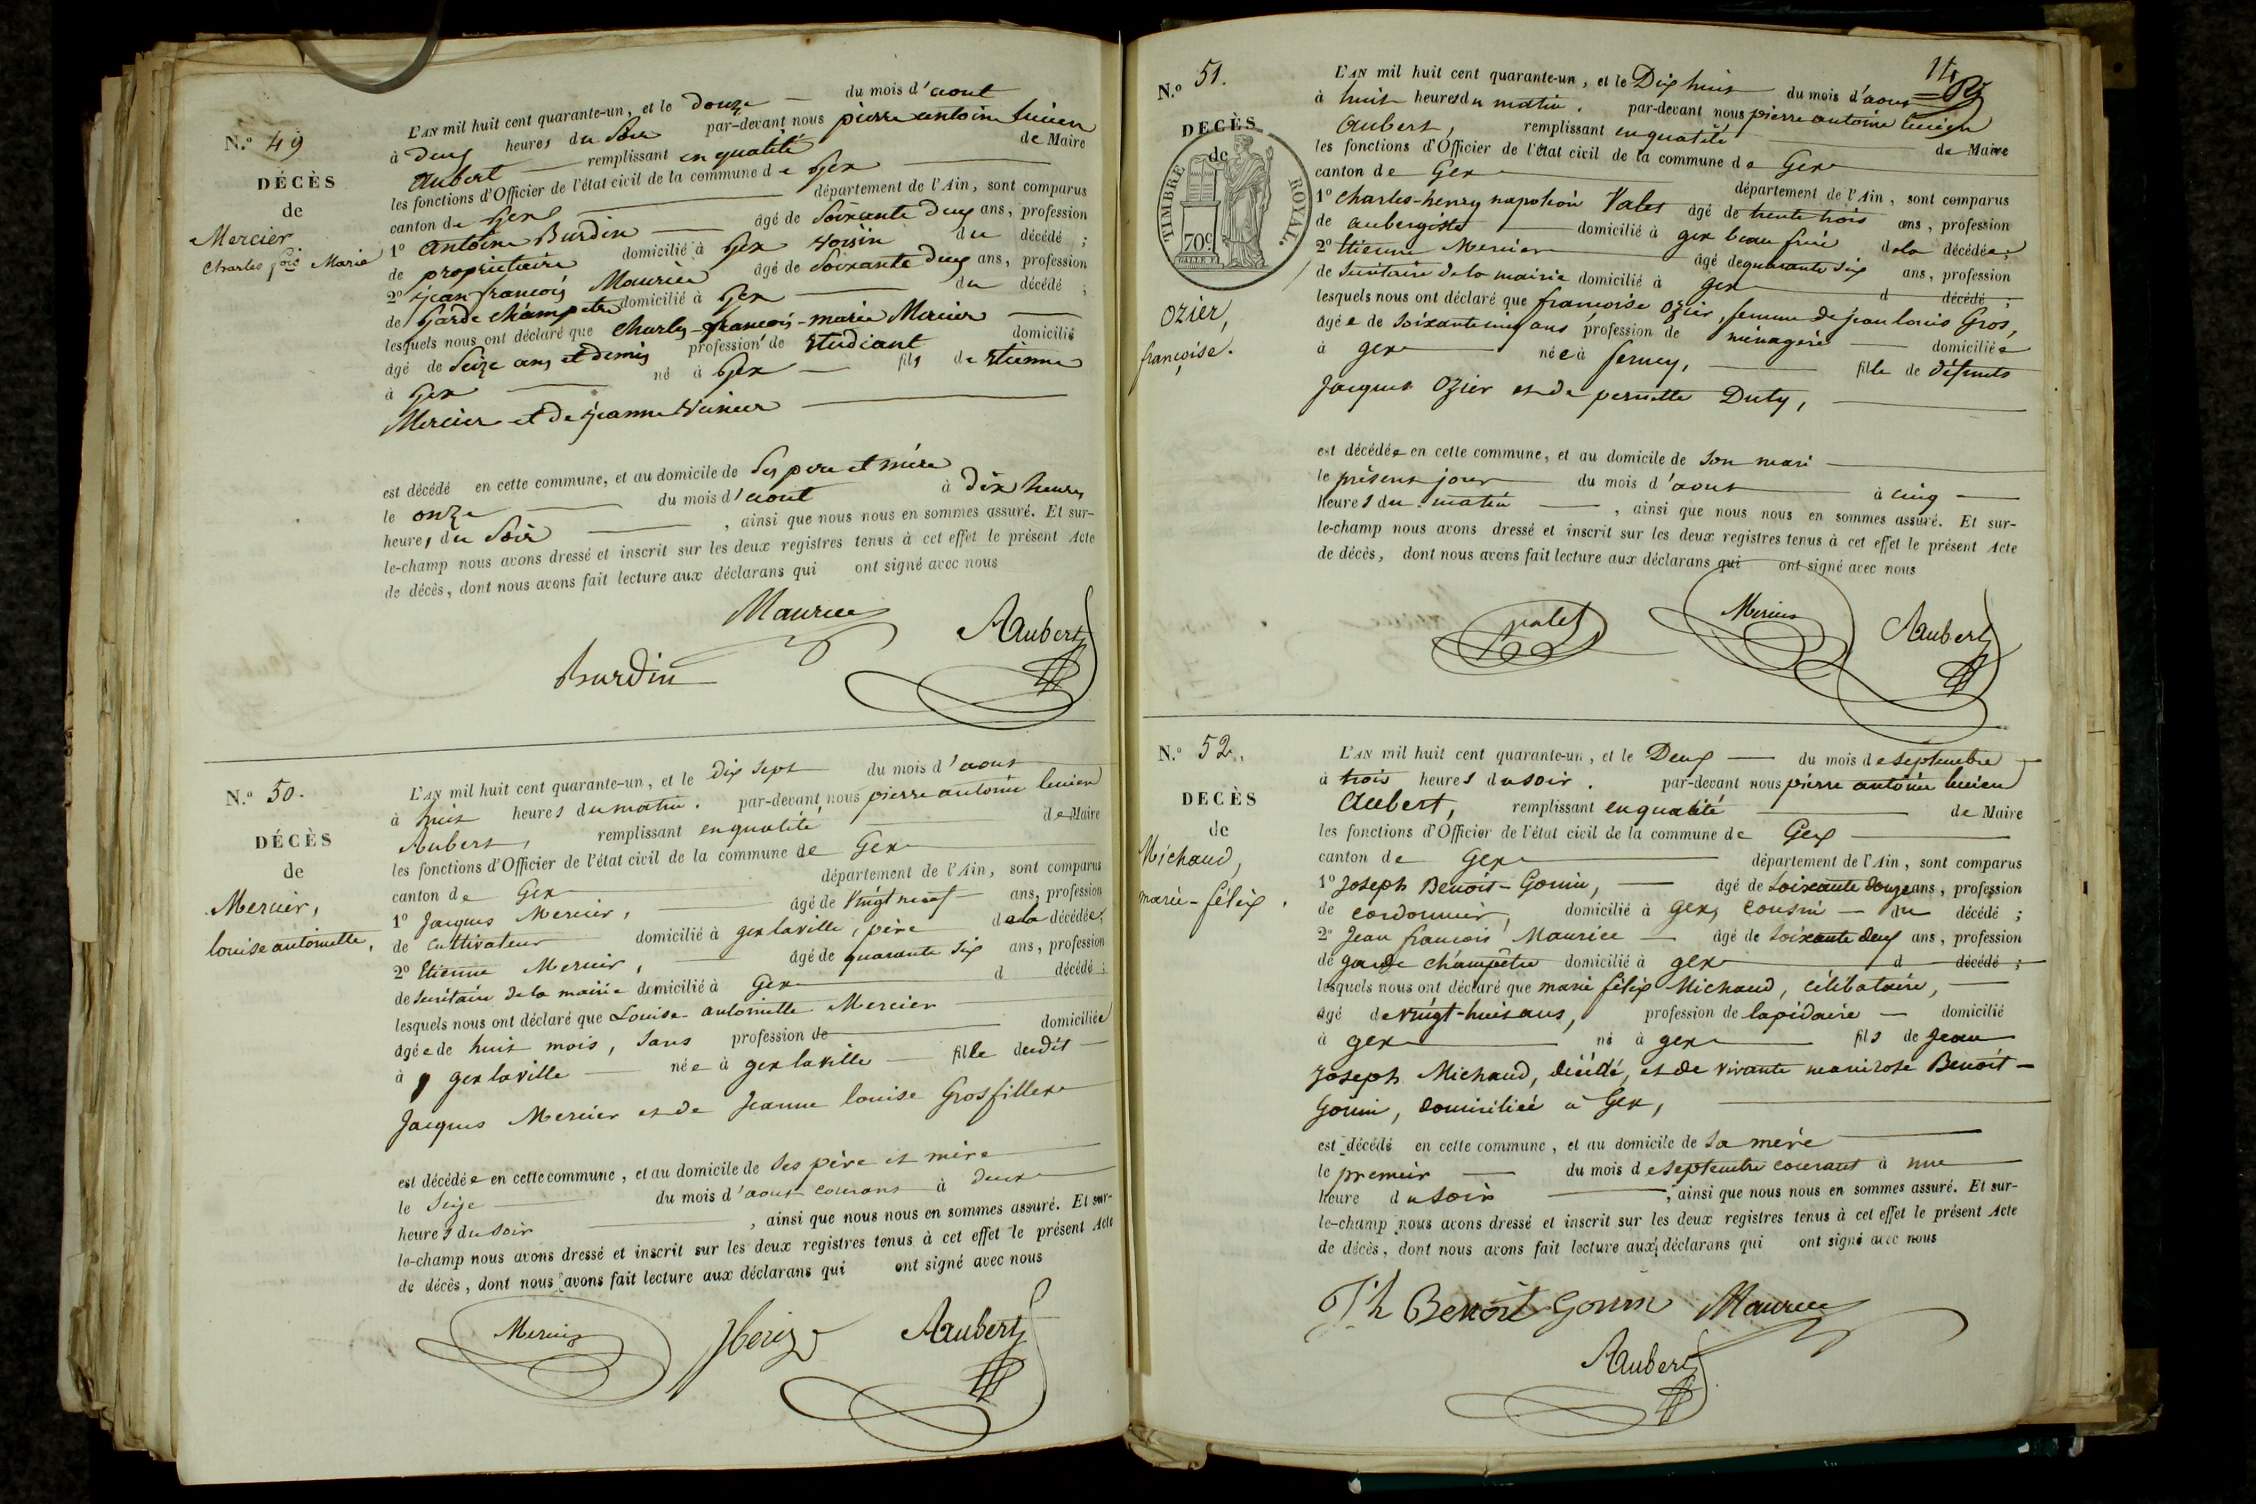 N.o 49
DÉCÈS
de
Mercier
Charles fois Marie
L'AN mil huit cent quarante-un, et le douze du mois d'aout
à deux heures du soir par-devant nous pierre antoine lucien
Aubert remplissant en qualité de Maire
les fonctions d'Officier de l'état civil de la commune de Gex
canton de Gex département de l'Ain, sont comparus
1o Antoine Burdin âgé de soixante deux ans, profession
de propriétaire domicilié à Gex voisin du décédé ;
2o jean françois Maurice âgé de soixante deux ans, profession
de Garde champetre domicilié à Gex du décédé ;
lesquels nous ont déclaré que Charles-françois-marie Mercier
âgé de Seize ans et demis profession de Etudiant domicilié
à Gex né à Gex fils de Etienne
Mercier et de jeanne
est décédé en cette commune, et au domicile de Ses pere et mère
le onze du mois d'aout à dix heures
heures du Soir , ainsi que nous nous en sommes assuré. Et sur-
le-champ nous avons dressé et inscrit sur les deux registres tenus à cet effet le présent Acte
de décès, dont nous avons fait lecture aux déclarans qui ont signé avec nous
Maurice
Burdin
Aubert
N.o 50.
DÉCÈS
de
Mercier,
louise antoinette,
L'AN mil huit cent quarante-un, et le dix sept du mois d'aout
à huit heures du matin. par-devant nous pierre antoine lucien
Aubert, remplissant en qualité de Maire
les fonctions d'Officier de l'état civil de la commune de Gex
canton de Gex département de l'Ain, sont comparus
1o Jacques Mercier, âgé de Vingt neuf ans, profession
de Cultivateur domicilié à gex la ville, père de la décédée ;
2o Etienne Mercier, âgé de quarante six ans, profession
de Secrétaire de la mairie domicilié à Gex d décédé ;
lesquels nous ont déclaré que Louise-antoinette Mercier
âgée de huit mois, sans profession de domiciliée
à gex la ville née à gex la ville fille dudit
Jacques Mercier et de Jeanne louise Grosfillex
est décédée en cette commune, et au domicile de ses père et mère
le Seize du mois d'aout courant à deux
heures du soir , ainsi que nous nous en sommes assuré. Et sur-
le-champ nous avons dressé et inscrit sur les deux registres tenus à cet effet le présent Acte
de décès, dont nous avons fait lecture aux déclarans qui ont signé avec nous
Mercier
Aubert
N.o 51.
DECÈS
de
TIMBRE ROYAL.
70c
Ozier,
françoise.
L'AN mil huit cent quarante-un, et le Dix huit du mois d'aout
à huit heures du matin. par-devant nous pierre antoine lucien
Aubert, remplissant en qualité de Maire
les fonctions d'Officier de l'état civil de la commune de Gex
canton de Gex département de l'Ain, sont comparus
1o Charles-henry napoléon Valet âgé de trente trois ans, profession
de aubergiste domicilié à gex beau frère de la décédée ;
2o Etienne Mercier âgé de quarante six ans, profession
de Secrétaire de la mairie domicilié à gex d décédé ;
lesquels nous ont déclaré que françoise ozier, femme de jean louis Gros,
âgée de soixante ans profession de ménagère domiciliée
à gex née à ferney, fille de défunts
Jacques Ozier et de pernette Duty,
est décédée en cette commune, et au domicile de son mari
le présent jour du mois d'aout à cinq
heures du matin , ainsi que nous nous en sommes assuré. Et sur-
le-champ nous avons dressé et inscrit sur les deux registres tenus à cet effet le présent Acte
de décès, dont nous avons fait lecture aux déclarans qui ont signé avec nous
valet
Mercier
Aubert
N.o 52.
DECÈS
de
Michaud,
marie-félix.
L'AN mil huit cent quarante-un, et le Deux du mois de septembre
à trois heures du soir. par-devant nous pierre antoine lucien
Aubert, remplissant en qualité de Maire
les fonctions d'Officier de l'état civil de la commune de Gex
canton de Gex département de l'Ain, sont comparus
1o Joseph Benoit-Gonin, âgé de soixante douze ans, profession
de cordonnier, domicilié à gex, cousin du décédé ;
2o Jean françois Maurice âgé de soixante deux ans, profession
de garde champêtre domicilié à gex d décédé ;
lesquels nous ont déclaré que marie félix Michaud, célibataire,
âgé de vingt-huit ans, profession de lapidaire domicilié
à gex né à gex fils de Jean
Joseph Michaud, décédé, et de vivante marie rose Benoit-
Gonin, domiciliée à Gex,
est décédé en cette commune, et au domicile de sa mère
le premier du mois de septembre courant à une
heure du soir , ainsi que nous nous en sommes assuré. Et sur-
le-champ nous avons dressé et inscrit sur les deux registres tenus à cet effet le présent Acte
de décès, dont nous avons fait lecture aux déclarans qui ont signé avec nous
Jh Benoit Gonin Maurice
Aubert